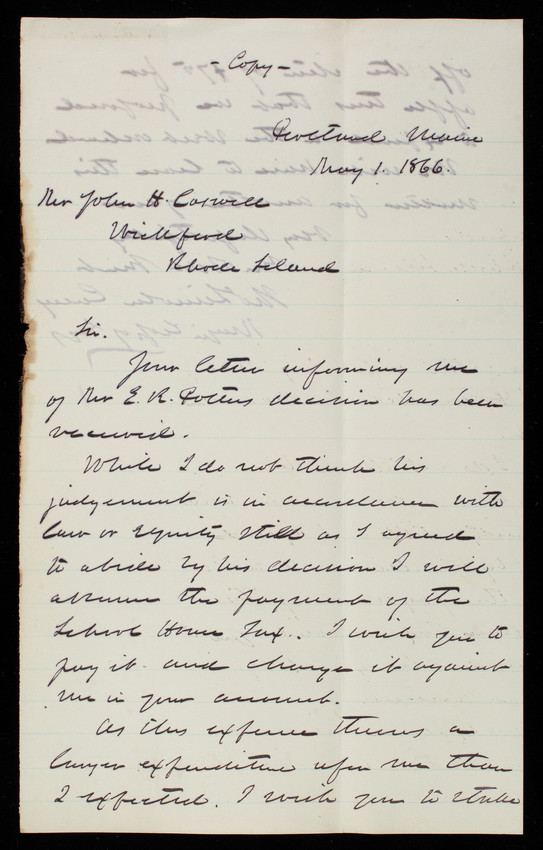 - Copy -
Portland Maine
May 1. 1866.
Mr John H. Caswell
Wickford
Rhode Island
Sir.
Your letter informing me
of Mr E. R. Potters decision has been
received.
While I do not think his
judgement is in accordance with
law or equity still as I agreed
to abide by his decision I will
assume the payment of the
School House Tax. I wish you to
pay it and charge it against
me in your account.
As this expense throws a
larger expenditure upon me than
I expected. I wish you to strike